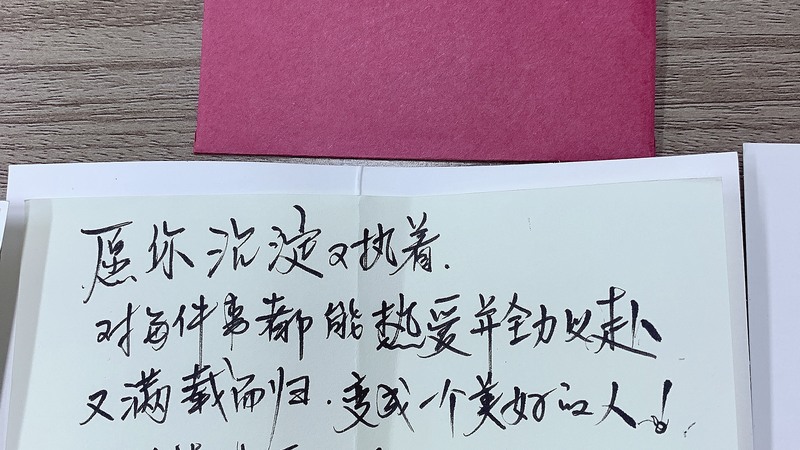 愿你沉淀又执着.
对每件事都能热爱并全力以赴
又满载而归.变成一个美好的人!